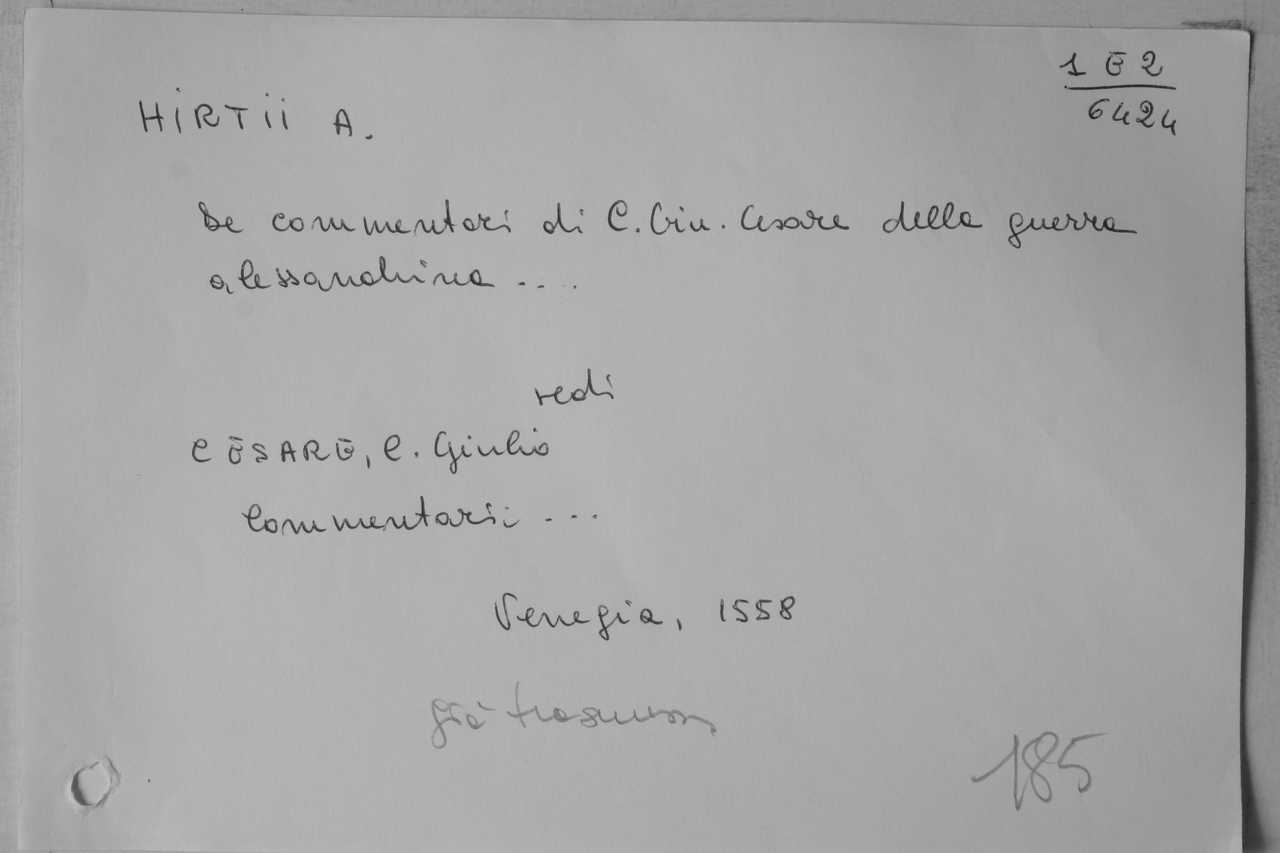 1 E 2
6424
HIRTII A.
De commentari di C. Giu. Cesare della guerra
alessandrina ....
vedi
CESARE, C. Giulio
Commentarii ...
Venegia, 1558
già
185